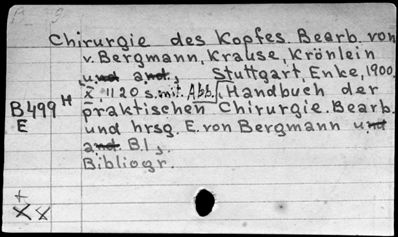 Chirurgie des Kopfes. Bearb. von
v. Bergmann, Krause, Krönlein
und and., Stuttgart, Enke, 1900.
1120 s. mit. Abb. Handbuch der
B499 H praktischen Chirurgie. Bearb.
E und hrsg. E. von Bergmann und
and. B.I,
Bibliogr.